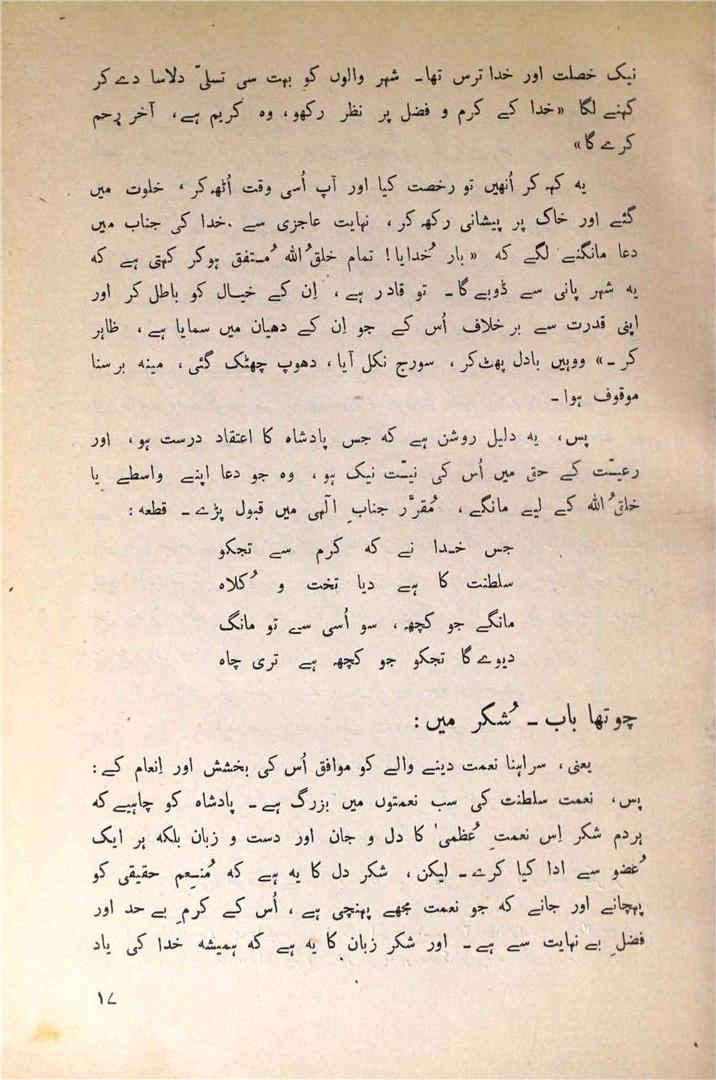 نیک خصلت اور خدا ترس تھا۔ شہر والوں کو بہت سی تسلیّ دلاسا دے کر
کہنے لگا «خدا کے کرم و فضل پر نظر رکھو، وہ کریم ہے، آخر رحم
کرے گا»
یہ کہہ کر اُنھیں تو رخصت کیا اور آپ اُسی وقت اُٹھ کر، خلوت میں
گئے اور خاک پر پیشانی رکھ کر، نہایت عاجزی سے خدا کی جناب میں
دعا مانگنے لگے کہ «بار خُدایا! تمام خلقُ اللہ مُتفق ہوکر کہتی ہے کہ
یہ شہر پانی سے ڈوبے گا۔ تو قادر ہے، اِن کے خیال کو باطل کر اور
اپنی قدرت سے بر خلاف اُس کے جو اِن کے دھیان میں سمایا ہے، ظاہر
کر۔» ووہیں بادل پھٹ کر، سورج نکل آیا، دھوپ چھٹک گئی، مینہ برسنا
موقوف ہوا۔
پس، یہ دلیل روشن ہے کہ جس پادشاہ کا اعتقاد درست ہو، اور
رعیّت کے حق میں اُس کی نیّت نیک ہو، وہ جو دعا اپنے واسطے یا
خلقُ اللہ کے لیے مانگے، مُقرَّر جنابِ الٰہی میں قبول پڑے۔ قطعہ:
جس خدا نے کہ کرم سے تجکو
سلطنت کا ہے دیا تخت و کُلاہ
مانگے جو کچھ، سو اُسی سے تو مانگ
دیوے گا تجکو جو کچھ ہے تری چاہ
چوتھا باب ۔ شُکر میں:
یعنی، سراہنا نعمت دینے والے کو موافق اُس کی بخشش اور اِنعام کے:
پس، نعمت سلطنت کی سب نعمتوں میں بزرگ ہے۔ پادشاہ کو چاہیے کہ
ہردم شکر اِس نعمتِ عُظمیٰ کا دل و جان اور دست و زبان بلکہ ہر ایک
عُضو سے ادا کیا کرے۔ لیکن، شکر دل کا یہ ہے کہ مُنعِم حقیقی کو
پہچانے اور جانے کہ جو نعمت مجھے پہنچی ہے، اُس کے کرمِ بے حد اور
فضلِ بے نہایت سے ہے۔ اور شکر زبان کا یہ ہے کہ ہمیشہ خدا کی یاد
۱۷